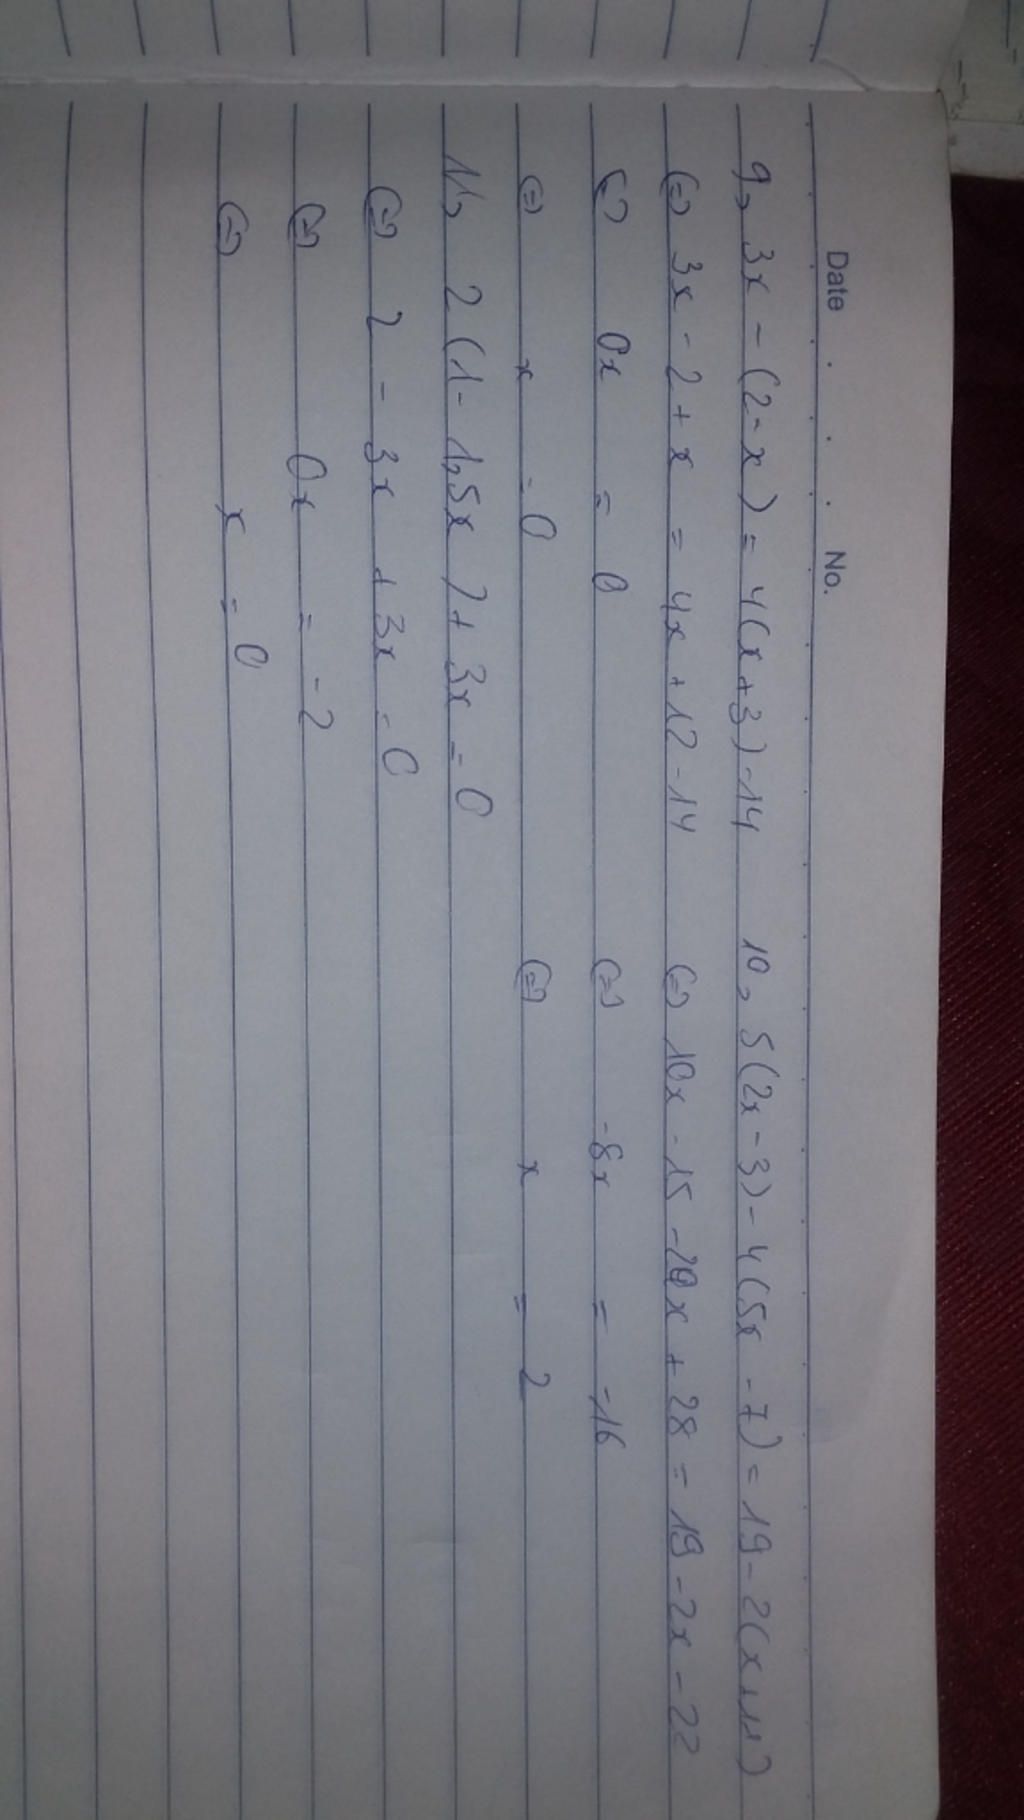 Date . . . . No.
9, 3x - (2-x) = 4(x+3)-14 10, 5(2x-3) - 4(5x-7) = 19-2(x+11)
(=) 3x - 2 + x = 4x + 12 - 14 (=) 10x - 15 - 20x + 28 = 19 - 2x - 22
(=) 0x = 0 (=) -8x = -16
(=) x = 0 (=) x = 2
11, 2 (1- 1,5x) + 3x = 0
(=) 2 - 3x + 3x = 0
(=) 0x = -2
(=) x = 0